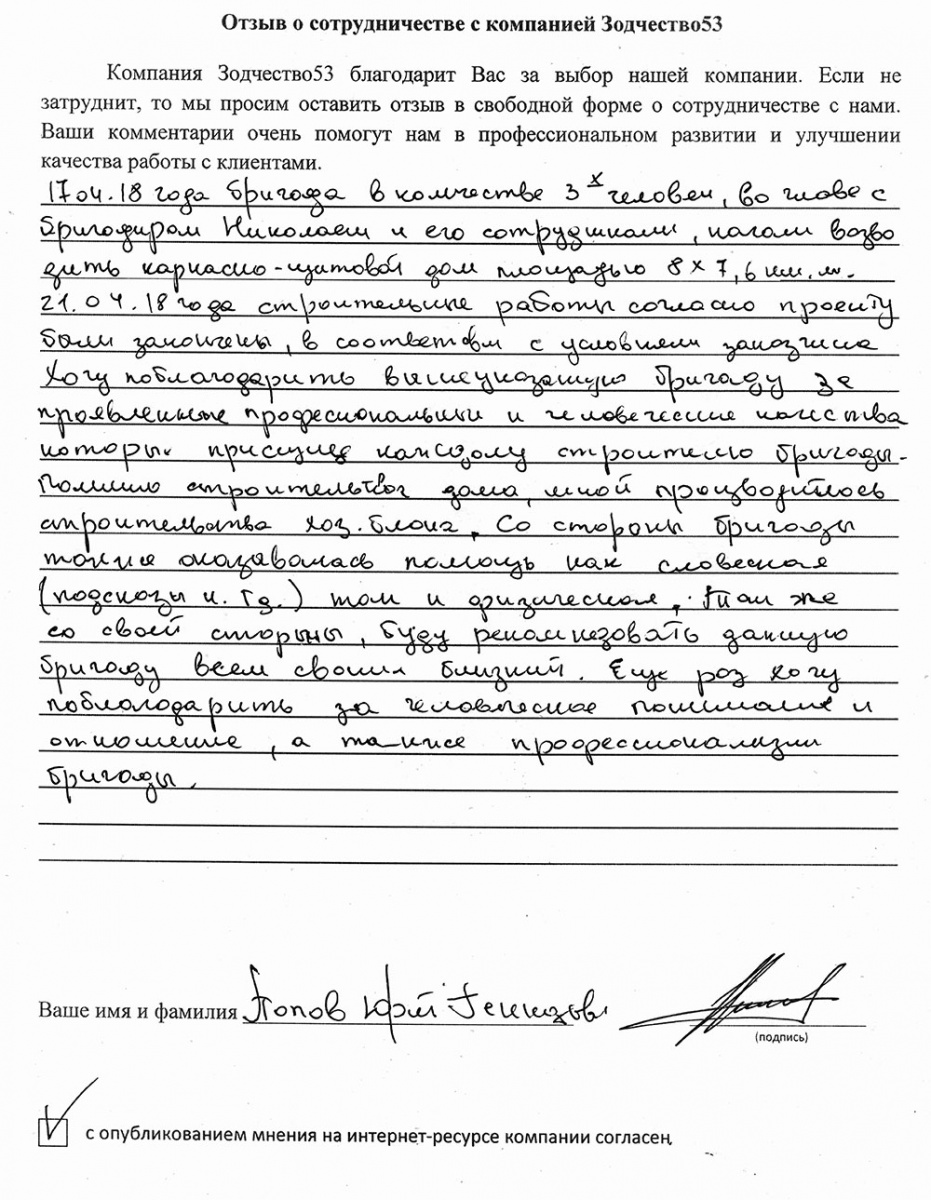 Отзыв о сотрудничестве с компанией Зодчество53
Компания Зодчество53 благодарит Вас за выбор нашей компании. Если не
затруднит, то мы просим оставить отзыв в свободной форме о сотрудничестве с нами.
Ваши комментарии очень помогут нам в профессиональном развитии и улучшении
качества работы с клиентами.
17.04.18 года бригада в количестве 3х человек, во главе с
бригадиром Николаем и его сотрудниками, начали возво
дить каркасно-щитовой дом площадью 8 х 7,6
21.04.18 года строительные работы согласно проекту
были закончены, в соответсвии с условиями заказчика
Хочу поблагодарить вышеуказанную бригаду за
проявленные професиональные и человеческие качества
которые присущие каждому строителю бригады.
Помимо строительства дома, мной производилось
строительства хоз.блока. Со стороны бригады
также оказывалась помощь как словесная
(подсказы и.тд.) так и физическая. Так же
со своей стороны, буду рекомендовать данную
бригаду всем своим близким. Еще раз хочу
поблагодарить за человеческое понимание и
отношение, а также профессионализм
бригады.
Ваше имя и фамилия Попов Юрий
(подпись)
с опубликованием мнения на интернет-ресурсе компании согласен